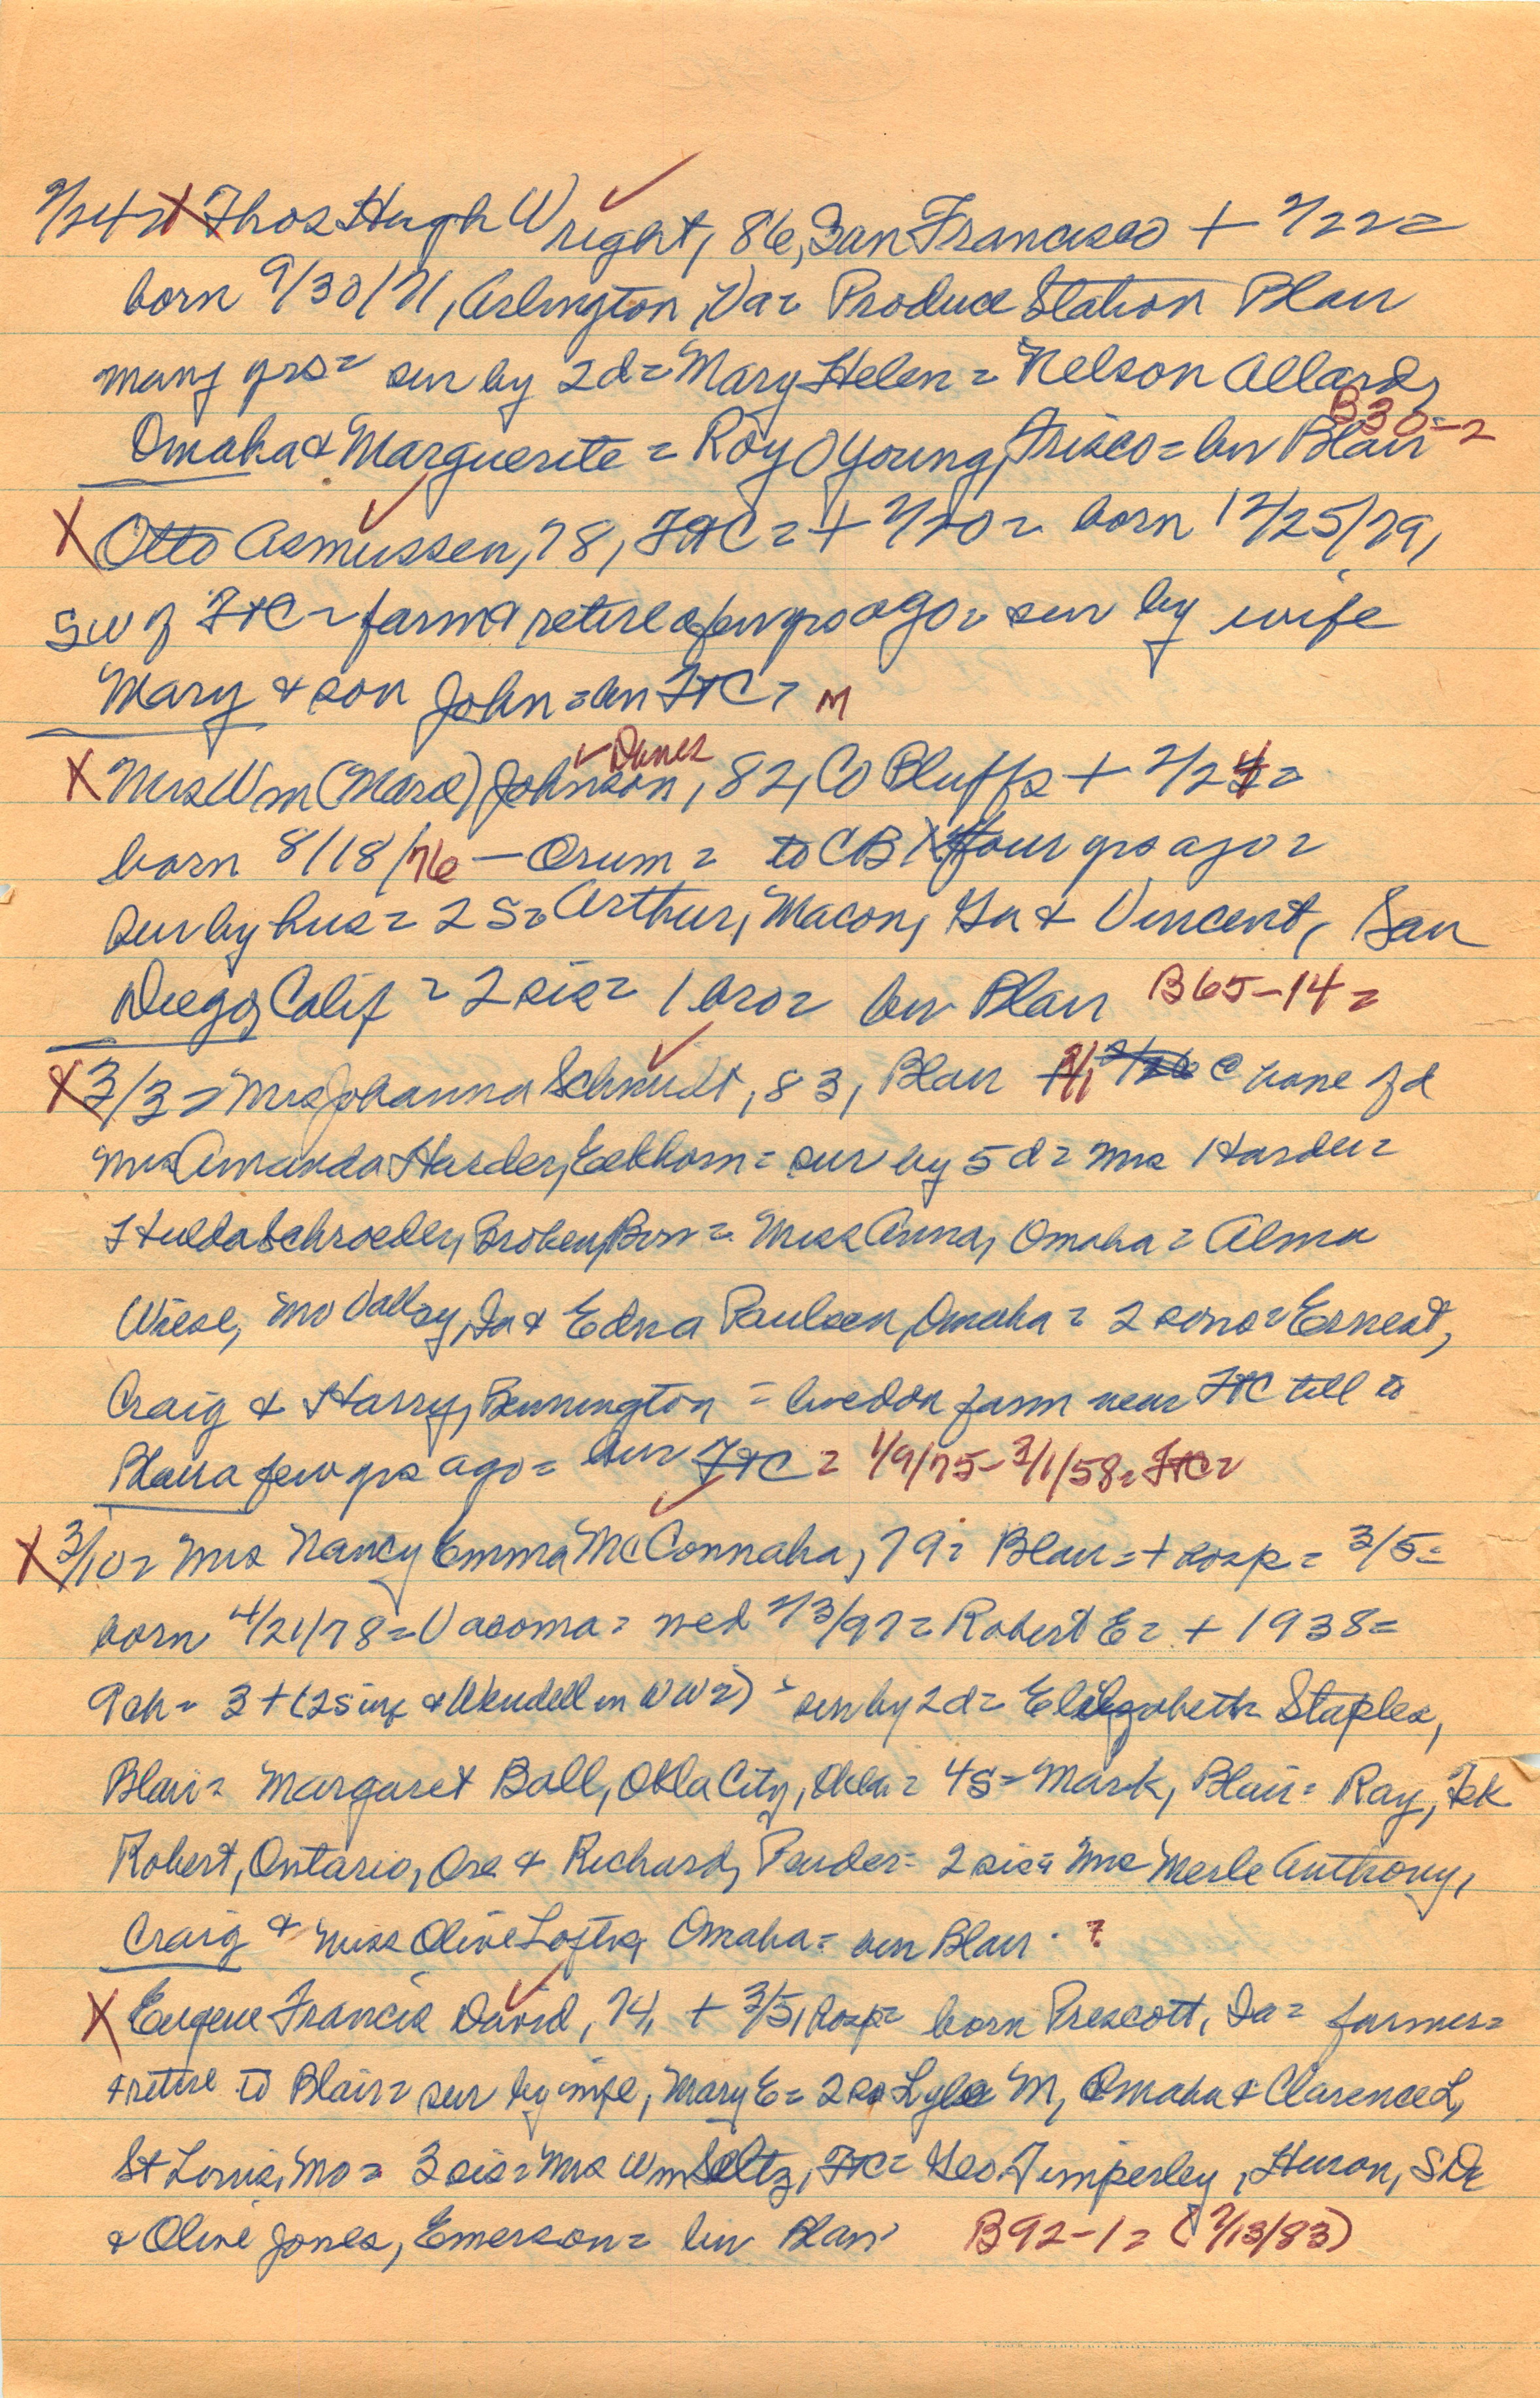 2/24= X Thos Hugh Wright, 86, San Francisco + 2/22=
born 9/30/71, Arlington, Va= Produce Station Blair
many yrs= sur by 2d= Mary Helen= Nelson Allard,
B30-2
Omaha & Marguerite = Roy Young, Frisco= bur Blair
X Otto Asmussen, 78, FtC= + 2/20= born 12/25/79,
SW of FtC= farm & retire a few yrs ago= sur by wife
Mary & son John= bur FtC= M
Danes
X Mrs Wm (Mara) Johnson, 82, Co Bluffs + 2/24=
born 8/18/76 - Orum= to CB four yrs ago=
sur by hus= 2s= Arthur, Macon, Ga & Vincent, San
Diego, Calif= 2 sis= 1 bro= bur Blair B65-14=
X 3/3= Mrs Johanna Schmidt, 83, Blair 3/1 @ home of d
Mrs Amanda Harder, Elkhorn= sur by 5d= Mrs Harder=
Hulda Schroeder, Broken Bow= Miss Anna, Omaha= Alma
Wiese, Mo Valley, Ia & Edna Paulsen, Omaha= 2 sons= Ernest,
Craig & Harry, Bennington= lived on farm near FtC till to
Blair a few yrs ago= bur FtC= 1/9/75-3/1/58= FtC=
X 3/10= Mrs Nancy Emma McConnaha, 79= Blair= + hosp= 3/5=
born 4/21/78= Vacoma= wed 2/3/97= Robert E= + 1938=
9ch= 3+ (2s inf & Wendell in WW2)= sur by 2d= Elizabeth Staples,
Blair= Margaret Ball, Okla City, Okla= 4s= Mark, Blair= Ray, Tek
Robert, Ontario, Ore & Richard, Pender= 2 sis= Mrs Merle Anthony,
Craig & Miss Olive Loftis, Omaha= bur Blair ?
X Eugene Francis David, 74, + 3/5, hosp= born Prescott, Ia= farmer=
& retire to Blair= sur by wife, Mary E= 2s= Lyle M, Omaha & Clarence L,
St Louis, Mo= 3 sis= Mrs Wm Seltz, FtC= Geo Timperley, Huron, SDk
& Olive Jones, Emerson= bur Blair B92-1= (2/13/83)